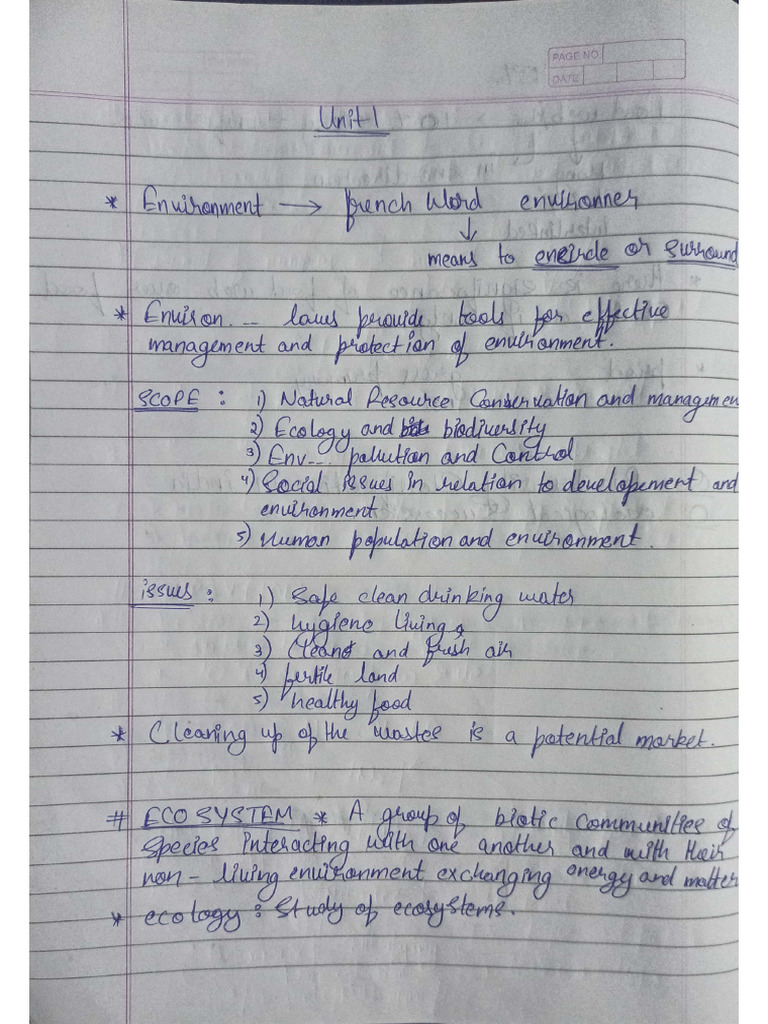 PAGE NO
DATE
Unit-1
* Environment → french word environner
↓
means to encircle or surround
* Environ. -- laws provide tools for effective
management and protection of environment.
SCOPE : 1) Natural Resource Conservation and managemen
2) Ecology and biodiversity
3) Env--. pollution and Control
4) Social issues in relation to developement and
environment
5) Human population and environment.
issues : 1) Safe clean drinking water
2) hygiene living
3) Clean and fresh air
4) fertile land
5) healthy food
* Cleaning up of the wastes is a potential market.
# ECOSYSTEM * A group of biotic communities of
species interacting with one another and with their
non-living environment exchanging energy and matter
* ecology : Study of ecosystems.